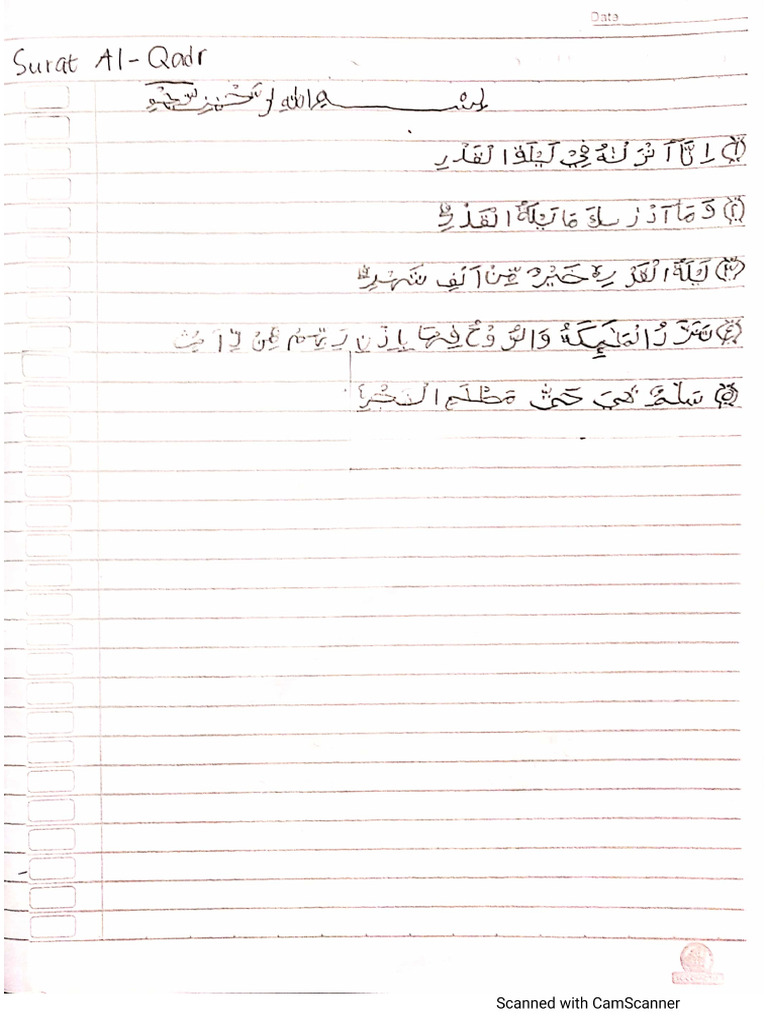 Date
Surat Al-Qadr
بســـــم الله الرحمن الرحيم
(١) اِنَّآ اَنْزَلْنٰهُ فِيْ لَيْلَةِ الْقَدْرِ
(٢) وَمَآ اَدْرٰىكَ مَا لَيْلَةُ الْقَدْرِۗ
(٣) لَيْلَةُ الْقَدْرِ ەۙ خَيْرٌ مِّنْ اَلْفِ شَهْرٍۗ
(٤) تَنَزَّلُ الْمَلٰۤىِٕكَةُ وَالرُّوْحُ فِيْهَا بِاِذْنِ رَبِّهِمْ مِنْ
(٥) سَلٰمٌ هِيَ حَتّٰى مَطْلَعِ الْفَجْرِ
Scanned with CamScanner